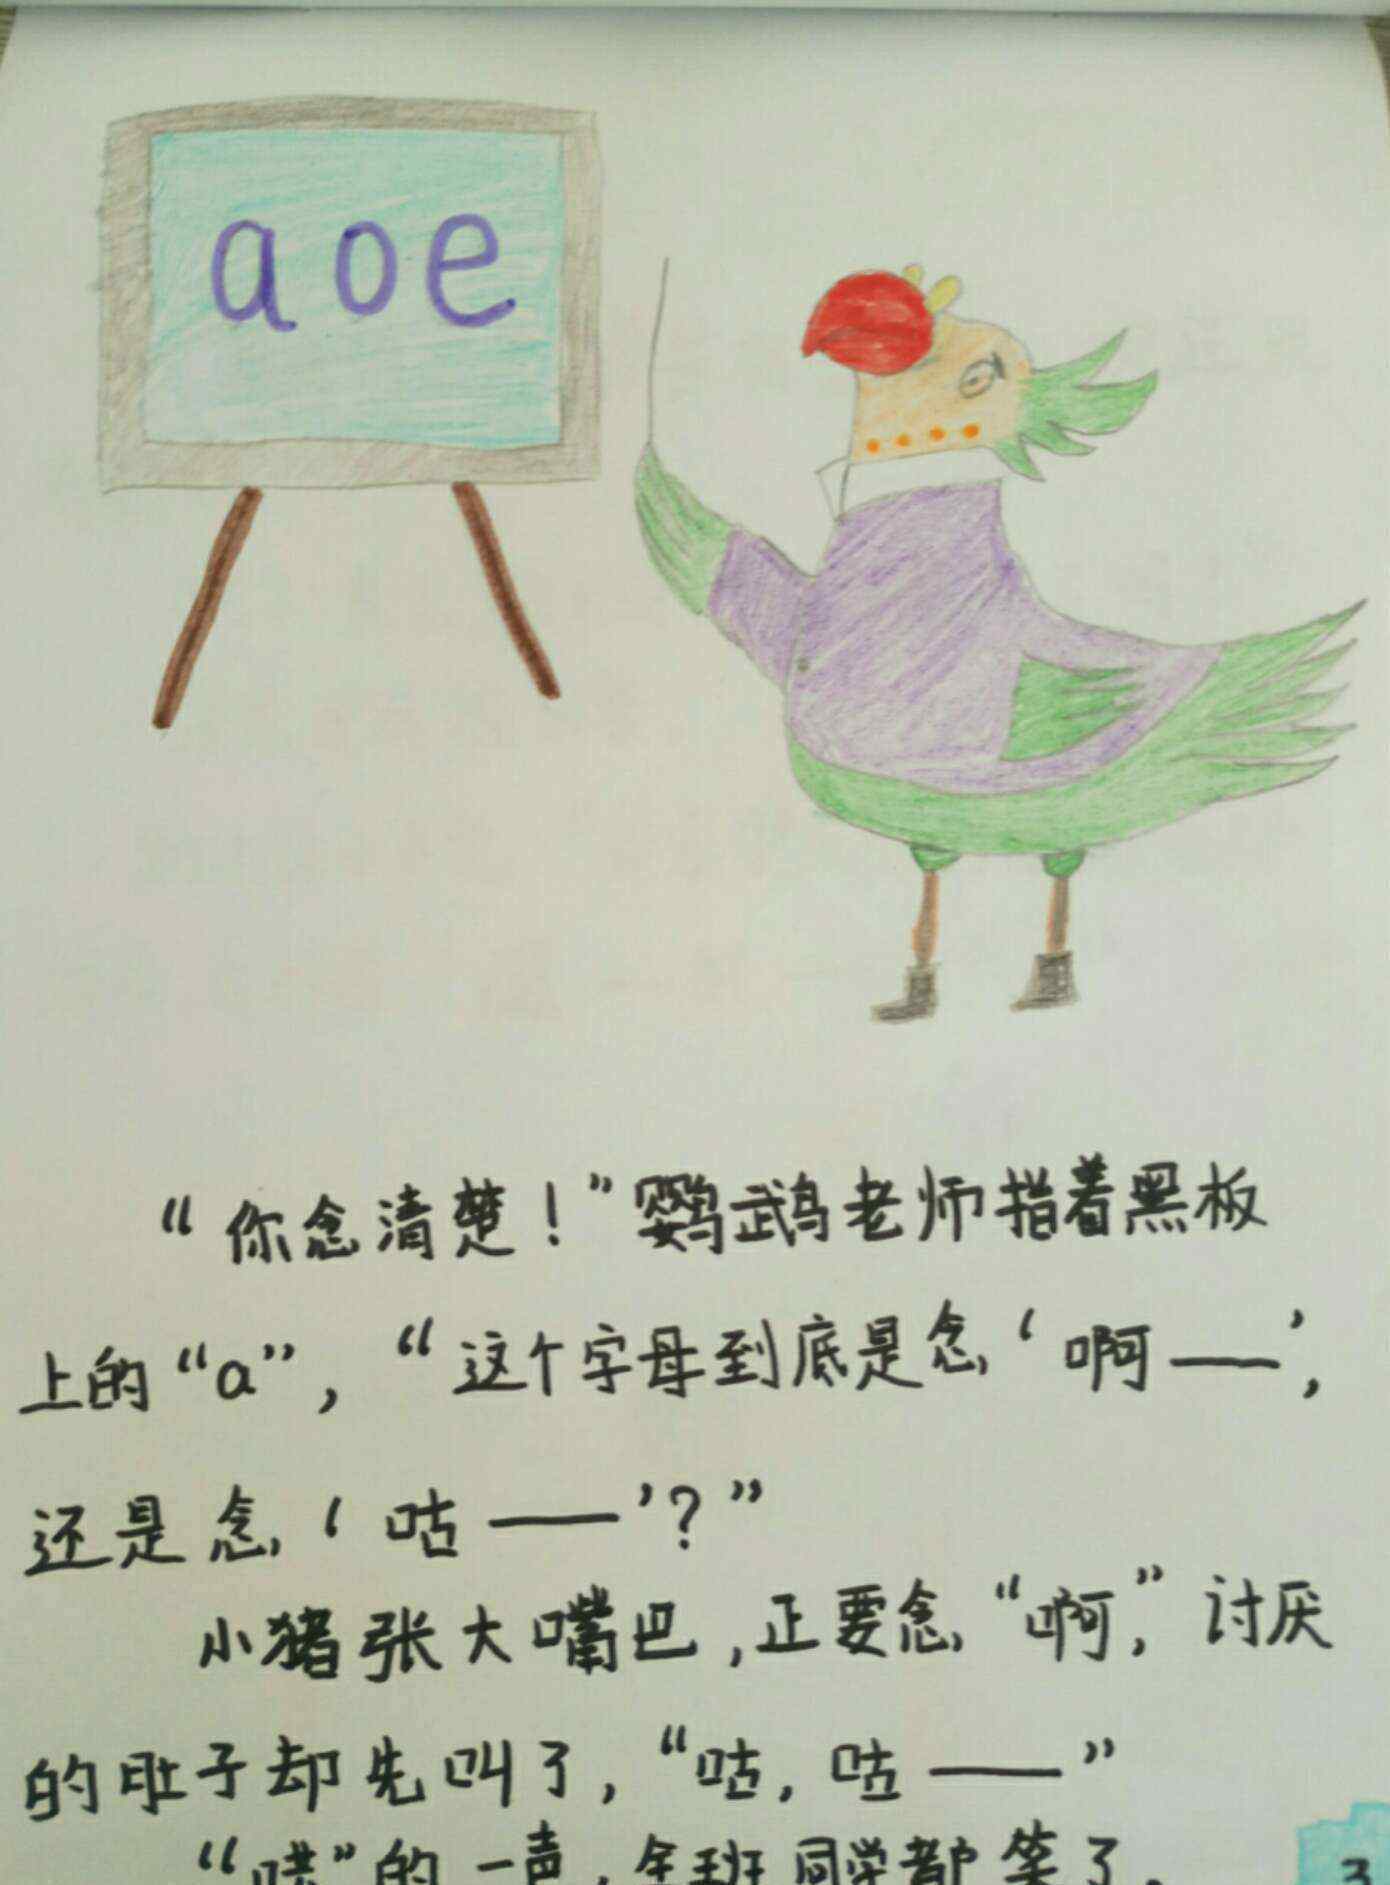 a o e
“你念清楚！”鹦鹉老师指着黑板
上的“a”，“这个字母到底是念‘啊——’，
还是念‘咕——’？”
小猪张大嘴巴，正要念“啊，”讨厌
的肚子却先叫了，“咕，咕——”
“哄”的一声，全班同学都笑了。
3